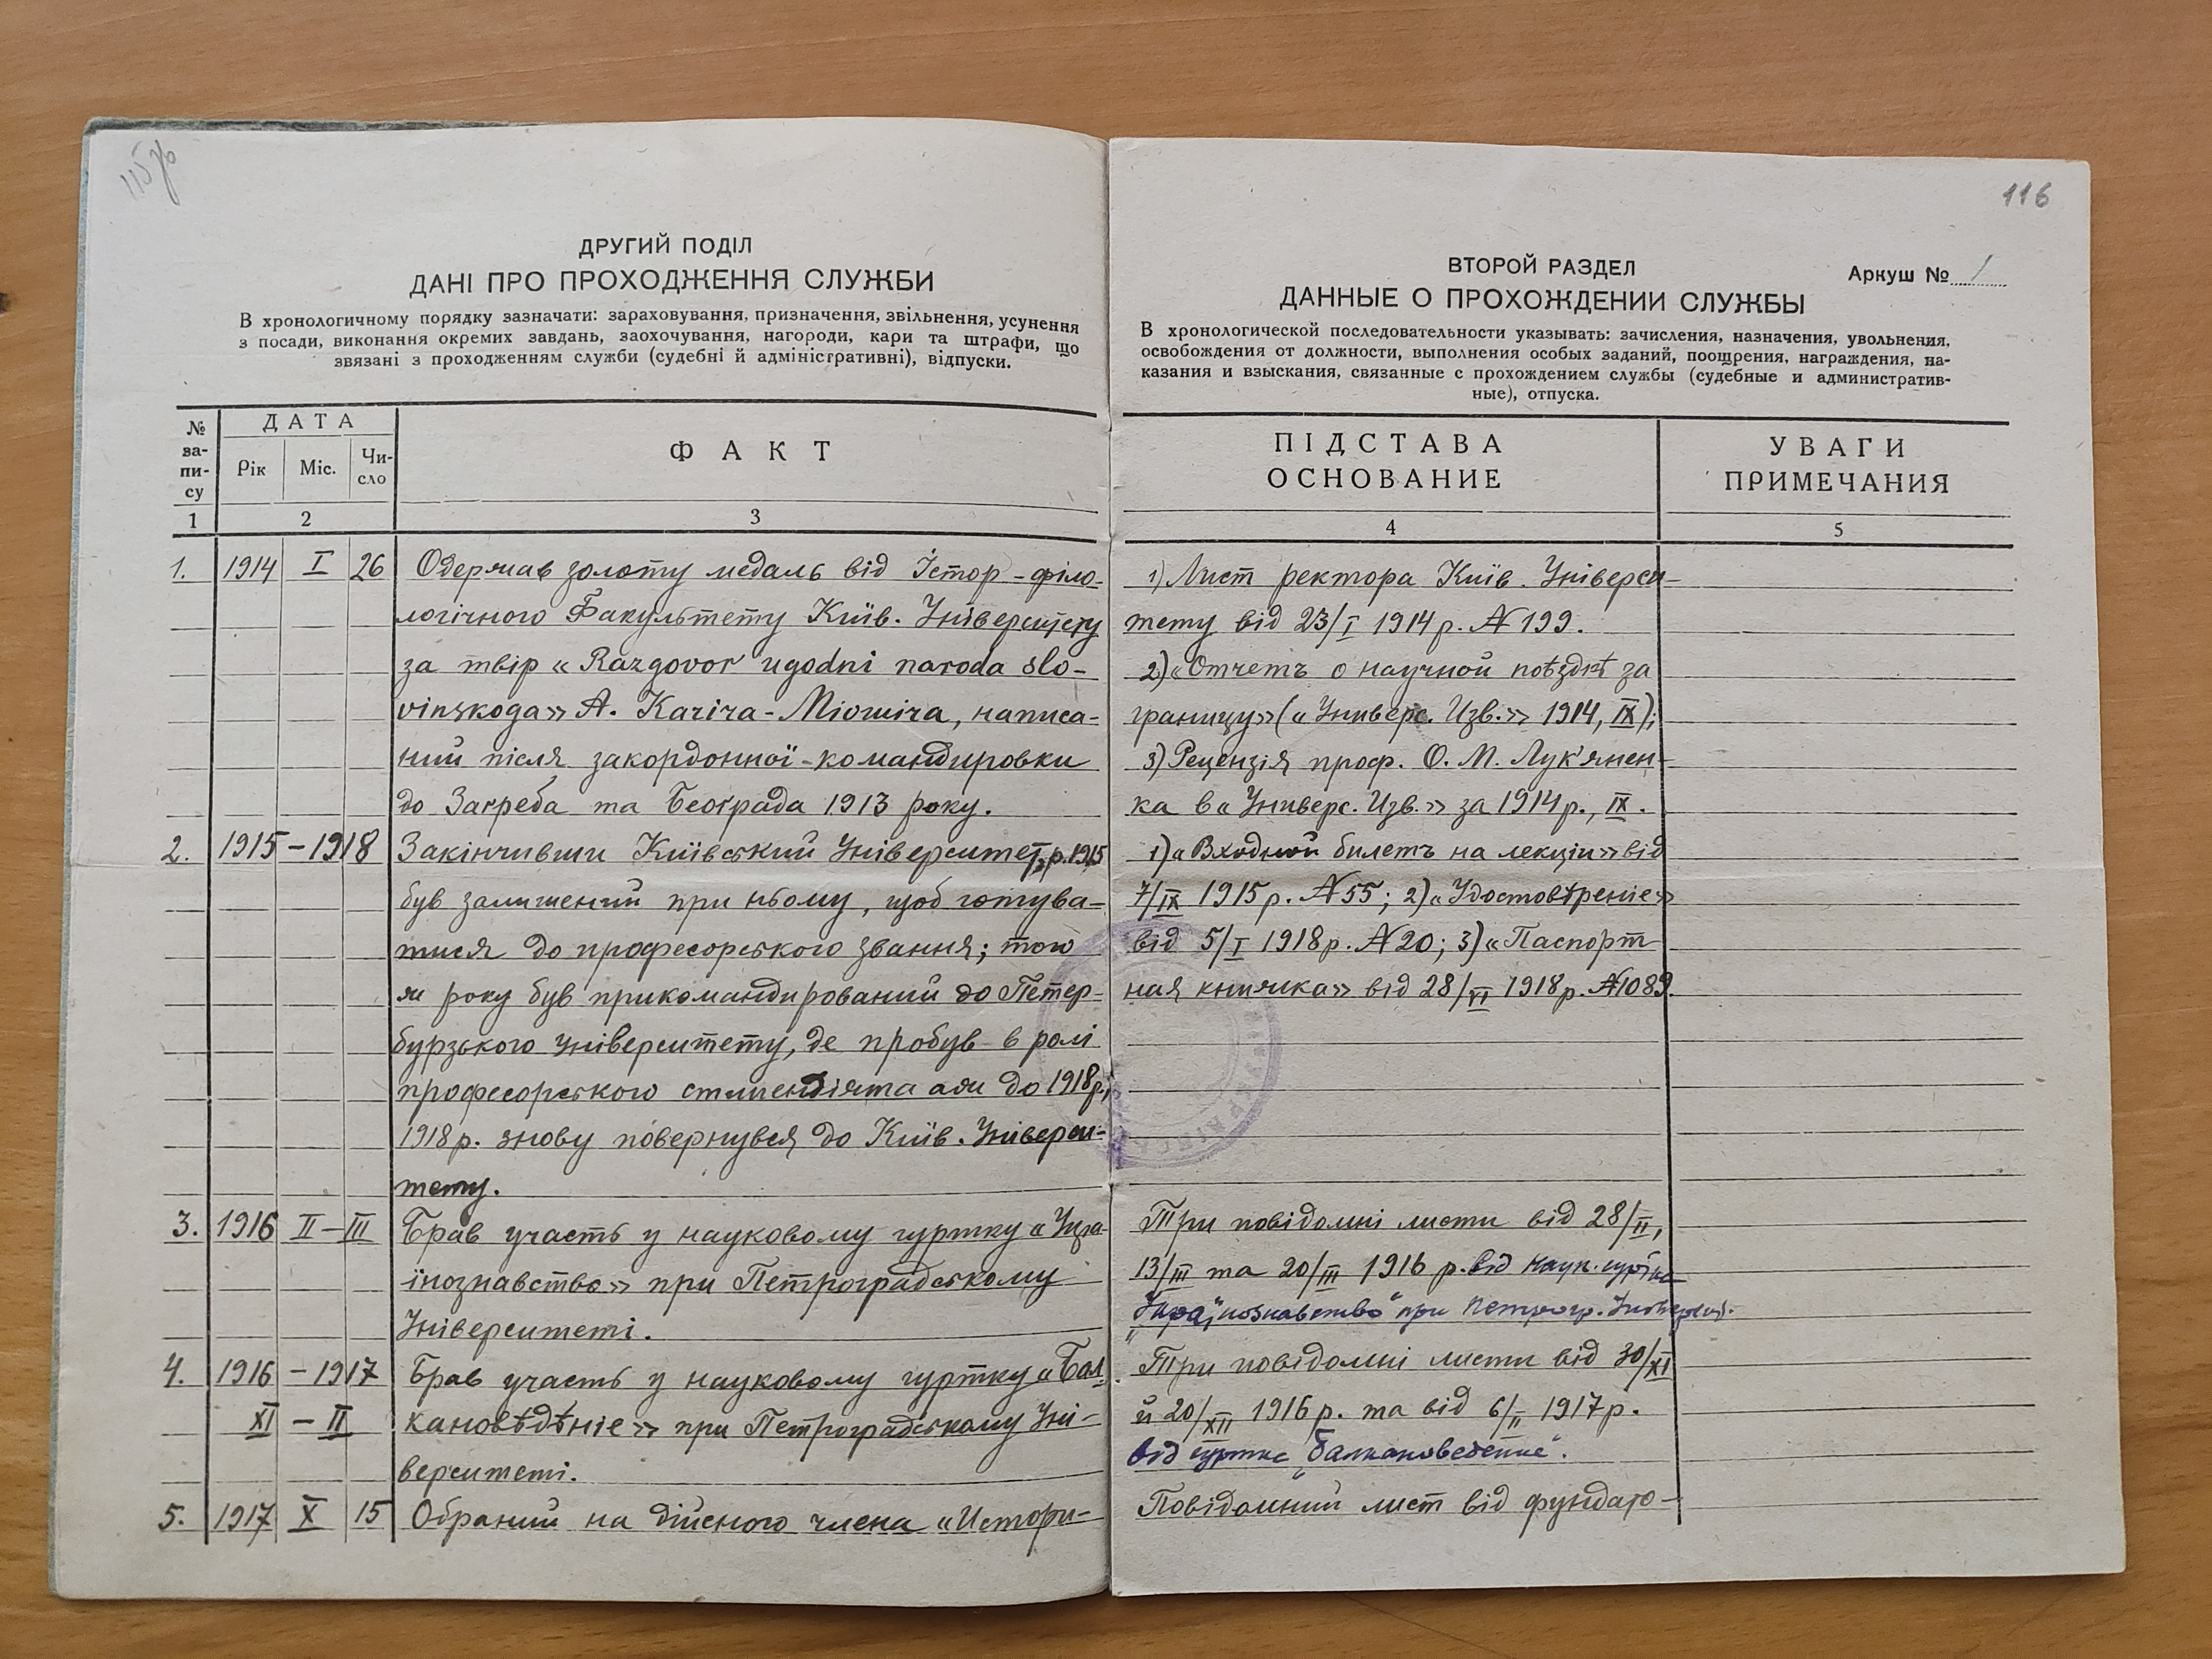 115зв
116
ДРУГИЙ ПОДІЛ
ДАНІ ПРО ПРОХОДЖЕННЯ СЛУЖБИ
В хронологичному порядку зазначати: зараховування, призначення, звільнення, усунення
з посади, виконання окремих завдань, заохочування, нагороди, кари та штрафи, що
звязані з проходженням служби (судебні й адміністративні), відпуски.
№ запису
ДАТА
Рік Міс. Число
ФАКТ
1 2 3
1. 1914 I 26 Одержав золоту медаль від Істор-філо-
логічного Факультету Київ. Університету
за твір «Razgovor ugodni naroda slo-
vinskoga» А. Качіча-Міошіча, написа-
ний після закордонної командировки
до Загреба та Београда 1913 року.
2. 1915 – 1918 Закінчивши Київський Університет р. 1915
був залишений при ньому, щоб готува-
тися до професорського звання; того
ж року був прикомандирований до Петер-
бурзького університету, де пробув в ролі
професорського стипендіята аж до 1918р.;
1918 р. знову повернувся до Київ. Універси-
тету.
3. 1916 II – III Брав участь у науковому гуртку «Укра-
їнознавство» при Петроградському
Університеті.
4. 1916 – 1917 Брав участь у науковому гуртку «Бал-
XI – II кановѣдѣніе» при Петроградському Уні-
верситеті.
5. 1917 X 15 Обраний на дійсного члена «Истори-
ВТОРОЙ РАЗДЕЛ
Аркуш № 1
ДАННЫЕ О ПРОХОЖДЕНИИ СЛУЖБЫ
В хронологической последовательности указывать: зачисления, назначения, увольнения,
освобождения от должности, выполнения особых заданий, поощрения, награждения, на-
казания и взыскания, связанные с прохождением службы (судебные и административ-
ные), отпуска.
ПІДСТАВА
ОСНОВАНИЕ
УВАГИ
ПРИМЕЧАНИЯ
4 5
1) Лист ректора Київ. Універси-
тету від 23/I 1914 р. № 199.
2) «Отчетъ о научной поѣздкѣ за
границу» («Универс. Изв.» 1914, IX);
3) Рецензія проф. О. М. Лук'янен-
ка в «Универс. Изв.» за 1914 р., IX.
1) «Входной билетъ на лекціи» від
7/IX 1915 р. № 55; 2) «Удостовѣреніе»
від 5/I 1918 р. № 20; 3) «Паспорт
ная книжка» від 28/VI 1918 р. № 1089.
Три повідомні листи від 28/II,
13/III та 20/III 1916 р. від наук. гуртка
"Українознавство" при Петрогр. Університ.
Три повідомні листи від 30/XI
й 20/XII 1916 р. та від 6/II 1917 р.
від гуртка „Балкановедение".
Повідомний лист від фундато-